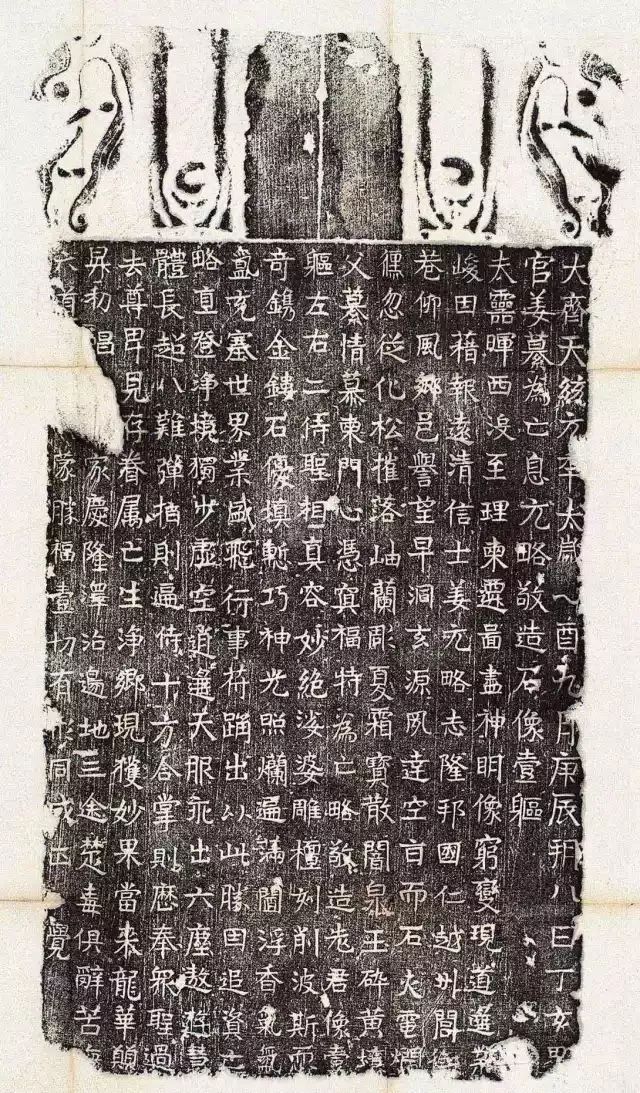 大齊天統元年太歲乙酉九月庚辰朔八日丁亥
官姜纂為亡息元略敬造石像壹軀
夫靈暉西沒至理東遷啚盡神明像窮變現道遥
峻因藉報遠清信士姜元略志隆邦國仁越州閭
巷仰風鄉邑譽望早洞玄源夙達空旨而石火電
儵忽從化松摧落岫蘭彫夏霜寳散闇泉玉碎黄壤
父纂情慕東門心憑冥福特為亡略敬造老君像壹
軀左右二侍聖相真容妙絶娑婆雕檀刻削波斯而
奇鐫金鏤石優填慙巧神光照爛遍滿閻浮香氣
盫亥塞世界業盛飛行事符踊出以此勝因追資亡
略直登浄境獨步虛空逍遥天服乖出六塵遨遊慧
體長超八難彈指則遍侍十方合掌則歷奉衆聖過
去尊卑見存眷属亡生浄鄉現獲妙果當来龍華願
昇初唱 家慶隆澤洽邊地三途楚毒俱辭苦
蒙勝福壹切有 同成正覺